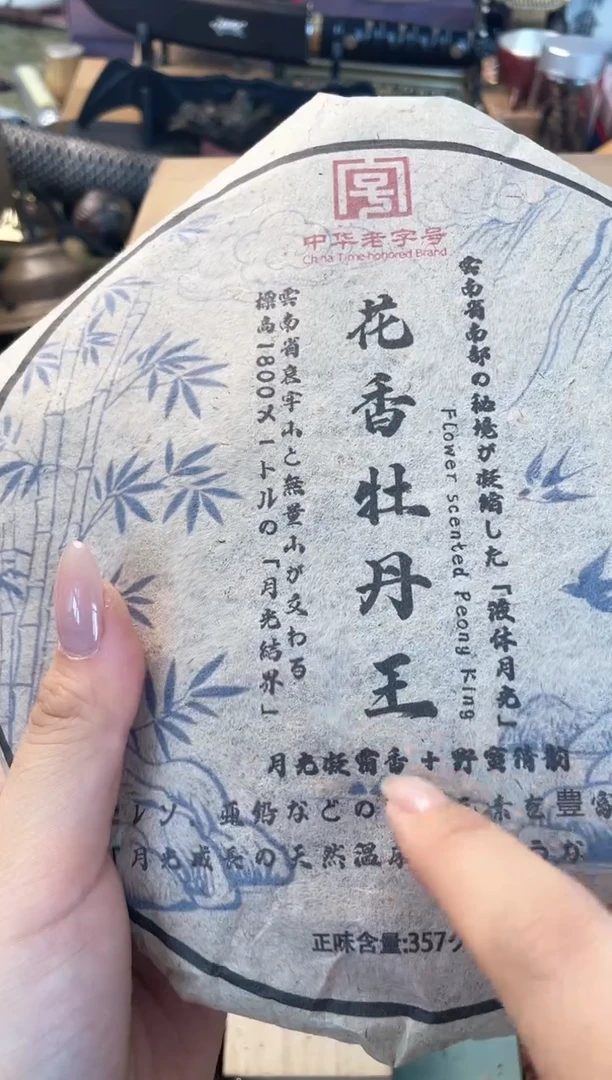 中华老字号
China Time-honored Brand
雲南省南部の秘境が凝縮した「液体月光」
Flower scented Peony King
花香牡丹王
雲南省哀牢山と無量山が交わる
標高1800メートルの「月光結界」
月光凝霜香＋野蜜清韵
レソ、亜鉛などの
素を豊富
月光成長の天然温床
正味含量:357グ